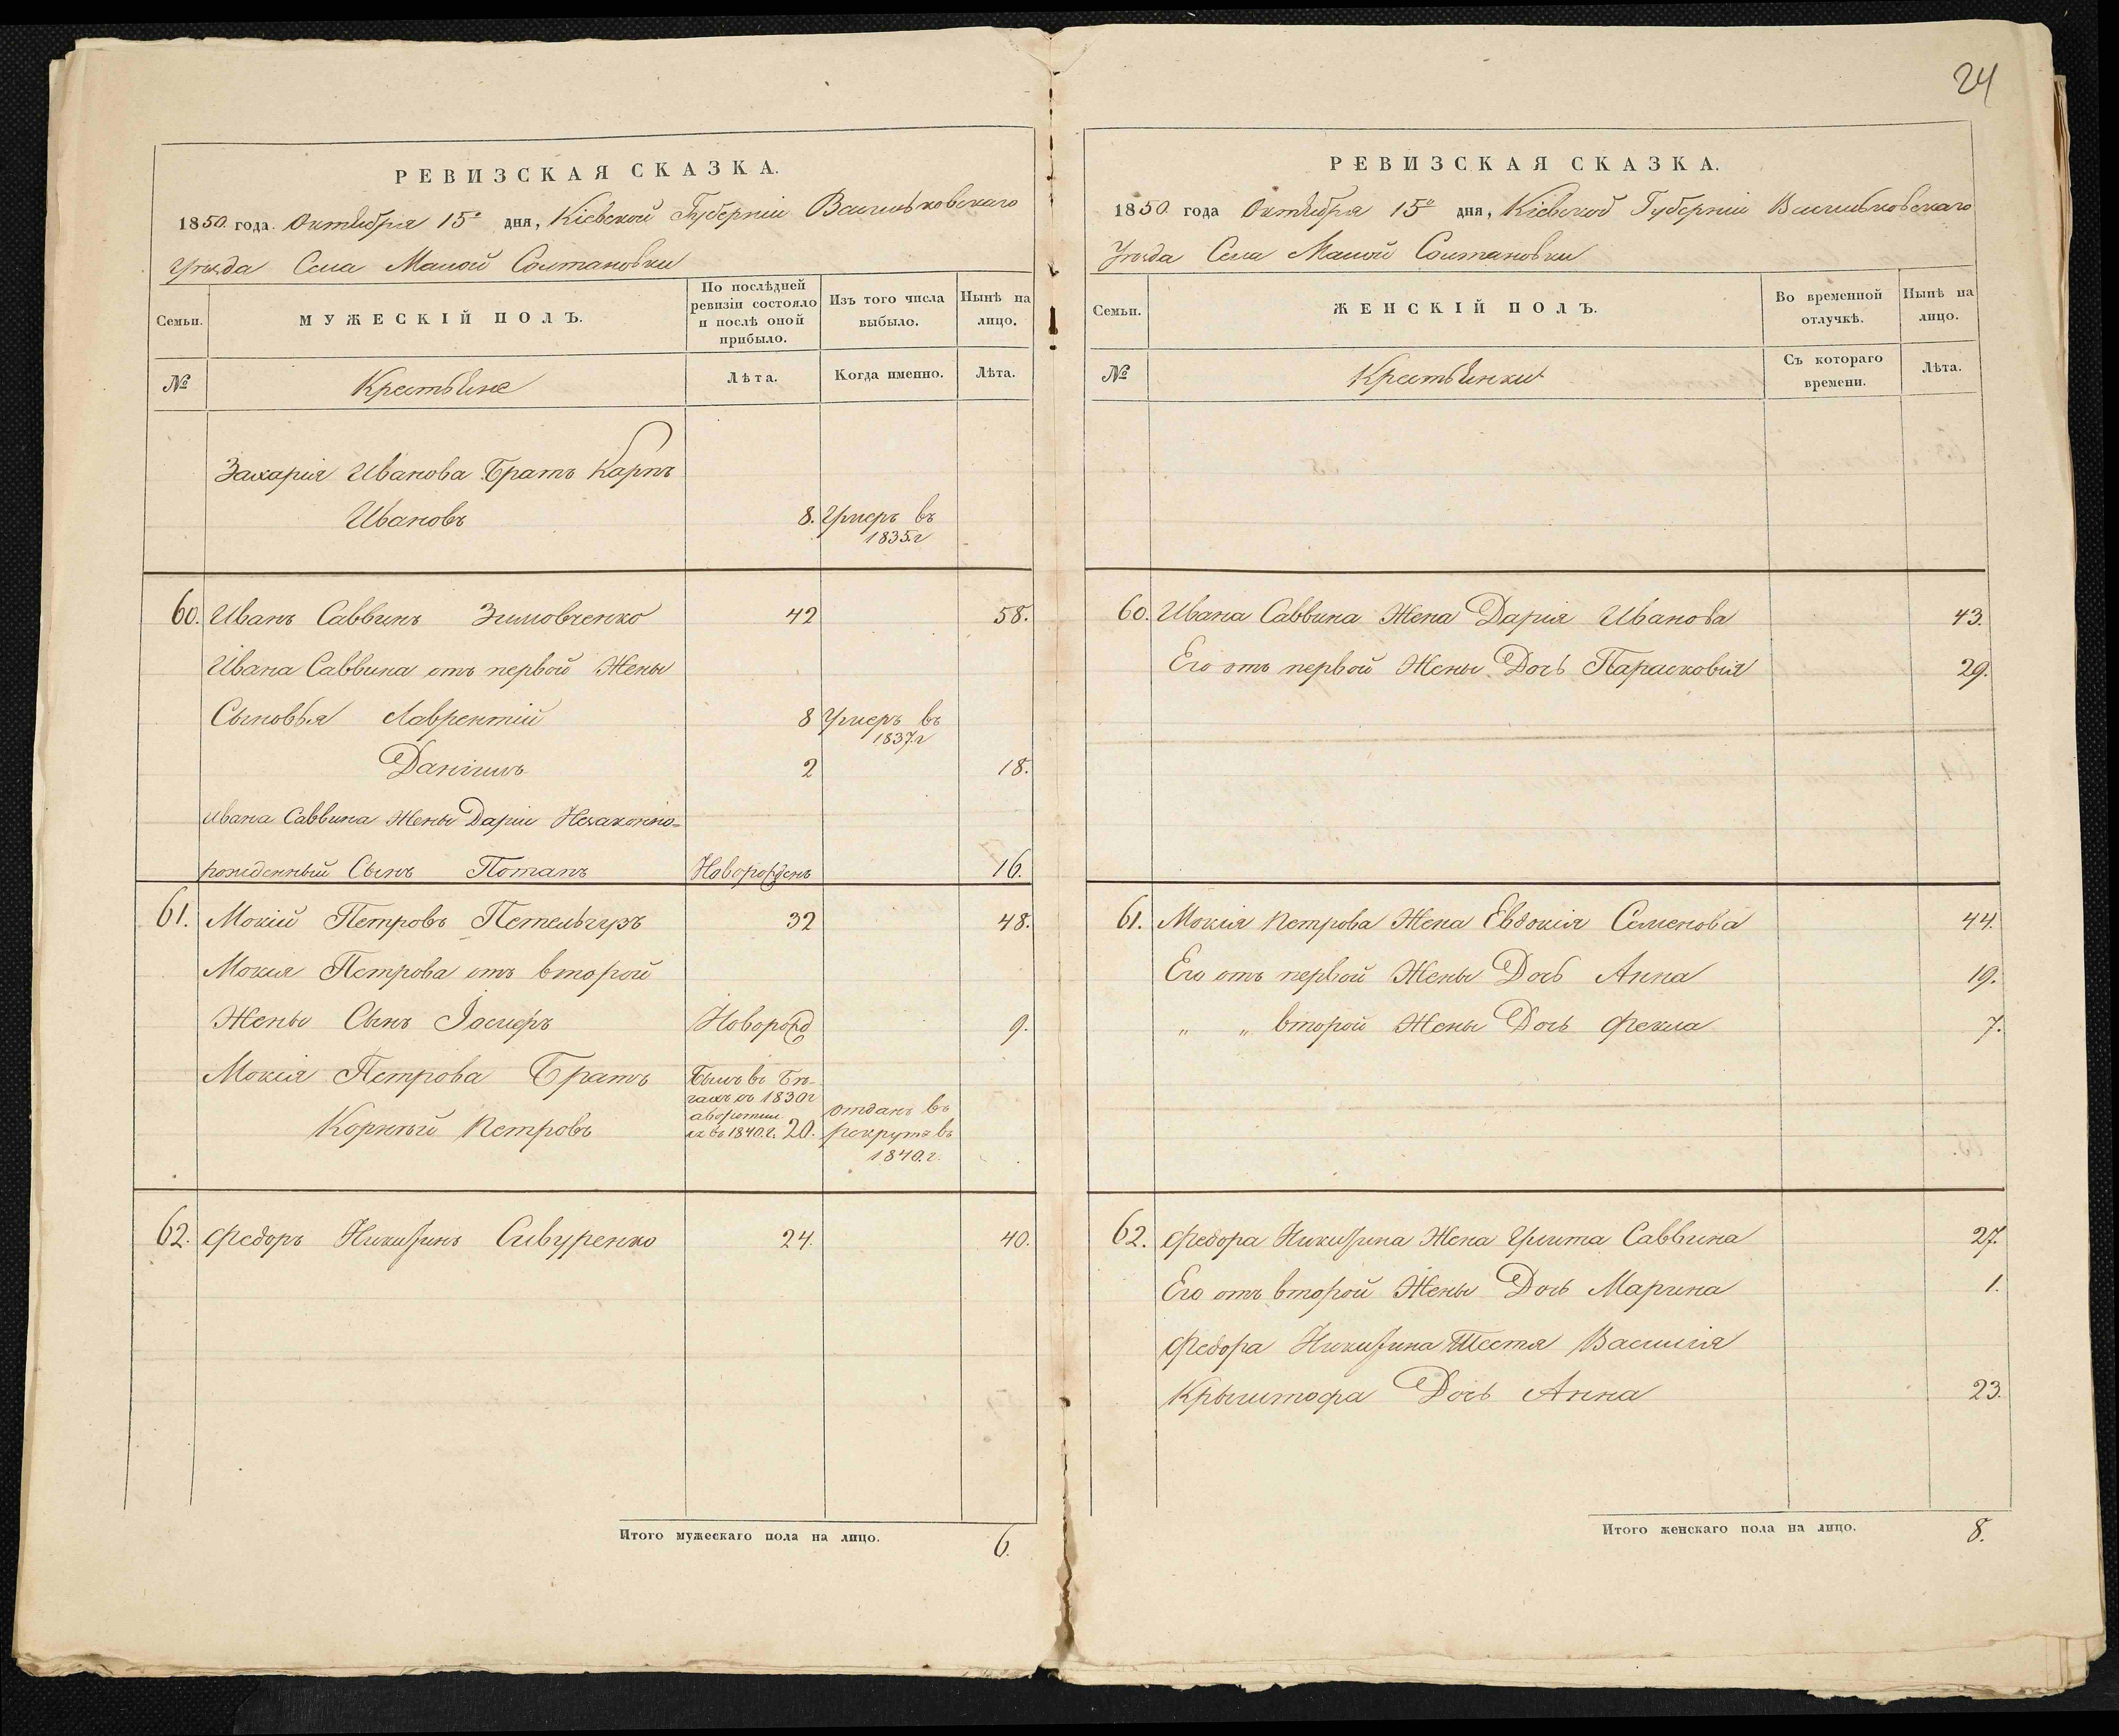 24
РЕВИЗСКАЯ СКАЗКА.
1850 года. Октября 15го дня, Кіевской Губерніи Васильковскаго
Уѣзда Села Малой Солтановки
Семьи.
МУЖЕСКІЙ ПОЛЪ.
По послѣдней ревизіи состояло и послѣ оной прибыло.
Изъ того числа выбыло.
Нынѣ на лицо.
№
Крестьяне
Лѣта.
Когда именно.
Лѣта.
Захарія Иванова Братъ Карпъ
Ивановъ 8. Умеръ въ 1835г
60. Иванъ Саввинъ Зимовченко 42 58.
Ивана Саввина отъ первой Жены
Сыновья Лаврентій 8 Умеръ въ 1837г
Даніилъ 2 18.
Ивана Саввина Жены Даріи Незаконно-
рожденный Сынъ Потапъ Новорожденъ 16.
61. Мокій Петровъ Петельгузъ 32 48.
Мокія Петрова отъ второй
Жены Сынъ Іосифъ Новорожд 9.
Мокія Петрова Братъ Былъ въ Бѣ-
гахъ съ 1830г
Корнѣй Петровъ авъ 1840.г. 20. отданъ въ
рекруты въ
1840.г.
62. Федоръ Никифинъ Сивуренко 24. 40.
Итого мужескаго пола на лицо. 6.
РЕВИЗСКАЯ СКАЗКА.
1850 года Октября 15го дня, Кіевской Губерніи Васильковскаго
Уѣзда Села Малой Солтановки
Семьи.
ЖЕНСКІЙ ПОЛЪ.
Во временной отлучкѣ.
Нынѣ на лицо.
№
Крестьянки
Съ котораго времени.
Лѣта.
60. Ивана Саввина Жена Дарія Иванова 43.
Его отъ первой Жены Дочь Парасковія 29.
61. Мокія Петрова Жена Евдокія Семенова 44.
Его отъ первой Жены Дочь Анна 19.
„ „ второй Жены Дочь Фекла 7.
62. Федора Никифина Жена Улита Саввина 27.
Его отъ второй Жены Дочь Марина 1.
Федора Никифина Тестя Василія
Крыштофа Дочь Анна 23.
Итого женскаго пола на лицо. 8.